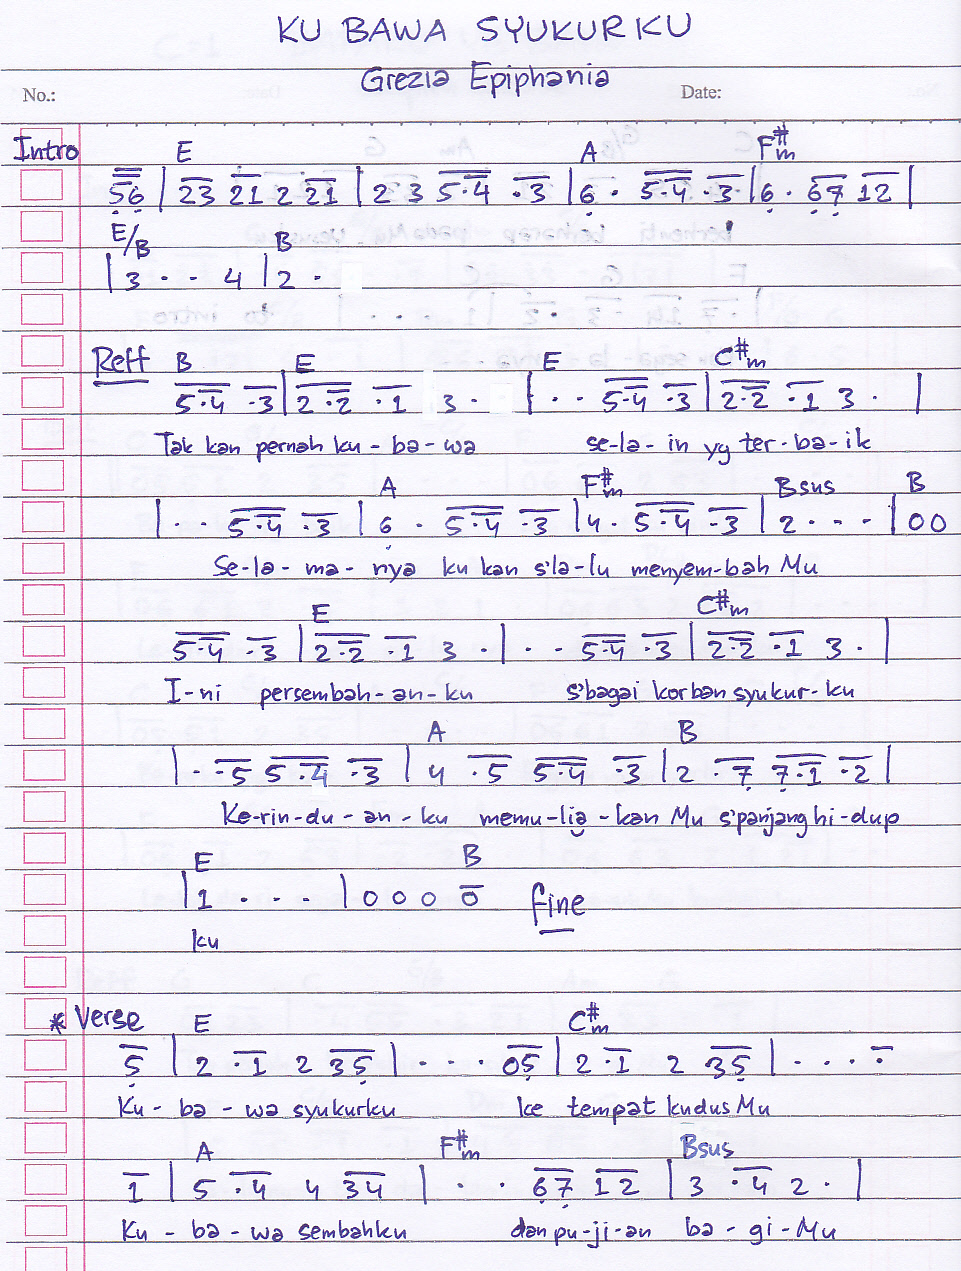 KU BAWA SYUKURKU
Grezia Epiphania
No.: Date:
Intro E A F#m
56 | 23 21 2 21 | 2 3 5.4 .3 | 6 . 5.4 .3 | 6 . 67 12 |
E/B B
| 3 . . 4 | 2 .
Reff B E E C#m
5.4 .3 | 2.2 .1 3 . | . . 5.4 .3 | 2.2 .1 3 . |
Tak kan pernah ku - ba - wa se-la-in yg ter-ba-ik
A F#m Bsus B
| . . 5.4 .3 | 6 . 5.4 .3 | 4 . 5.4 .3 | 2 . . . | 0 0
Se-la-ma-nya ku kan s'la-lu menyem-bah Mu
E C#m
5.4 .3 | 2.2 .1 3 . | . . 5.4 .3 | 2.2 .1 3 . |
I-ni persembah-an-ku s'bagai korban syukur-ku
A B
| . .5 5.4 .3 | 4 .5 5.4 .3 | 2 .7 7.1 .2 |
Ke-rin-du-an-ku memu-lia-kan Mu s'panjang hi-dup
E B
| 1 . . . | 0 0 0 0 fine
ku
* Verse E C#m
5 | 2 .1 2 35 | . . . 05 | 2 .1 2 35 | . . . .
Ku - ba - wa syukurku ke tempat kudus Mu
A F#m Bsus
1 | 5 .4 4 34 | . . 67 12 | 3 .4 2 . |
Ku - ba - wa sembahku dan pu-ji-an ba - gi - Mu